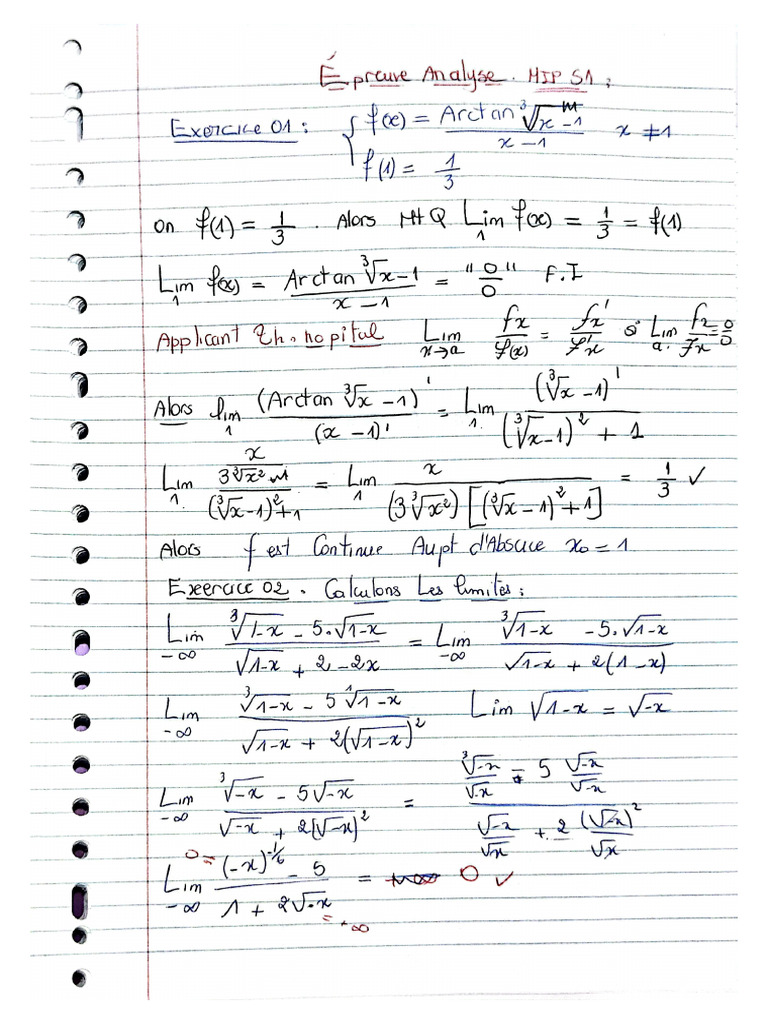 Épreuve Analyse. MIP S1 :
Exercice 01 : { f(x) = Arctan ∛x - 1 / x - 1 x ≠ 1
f(1) = 1/3
on f(1) = 1/3 . Alors MQ Lim_1 f(x) = 1/3 = f(1)
Lim_1 f(x) = Arctan ∛x - 1 / x - 1 = "0/0" F.I
Applicant th. hopital Lim_{x→a} fx / f(x) = fx' / f'x si Lim_a. fx / fx = 0/0
Alors lim_1 (Arctan ∛x - 1)' / (x - 1)' = Lim_1. (∛x - 1)' / (∛x - 1)² + 1
Lim_1. (x / 3∛x²) / (∛x - 1)² + 1 = Lim_1 x / (3∛x²) [(∛x - 1)² + 1] = 1/3 ✓
Alors f est Continue Au pt d'Abscice x₀ = 1
Exeercice 02 . Calculons Les limites :
Lim_{-∞} ∛1-x - 5.√1-x / √1-x + 2 - 2x = Lim_{-∞} ∛1-x - 5.√1-x / √1-x + 2(1 - x)
Lim_{-∞} ∛1-x - 5 √1-x / √1-x + 2(√1-x)² Lim √1-x = √-x
Lim_{-∞} ∛-x - 5√-x / √-x + 2(√-x)² = (∛-x / √-x - 5 √-x / √-x) / (√-x / √-x + 2 (√-x)² / √x)
Lim_{-∞} 0 = (-x)^{-1/6} - 5 / 1 + 2√-x = 0 ✓
= +∞